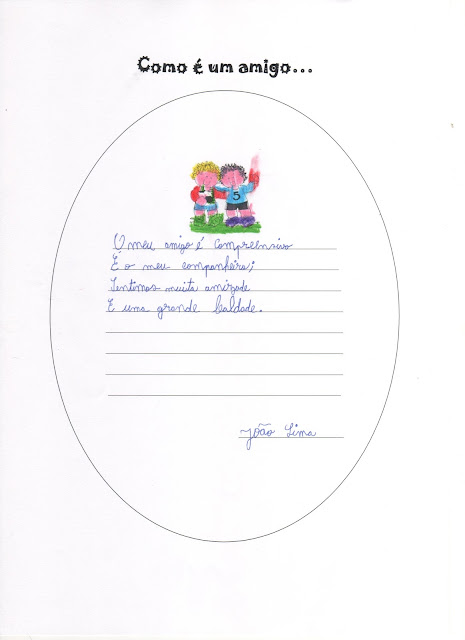 Como é um amigo...
5
O meu amigo é compreensivo
É o meu companheiro;
Sentimos muita amizade
E uma grande lealdade.
João Lima